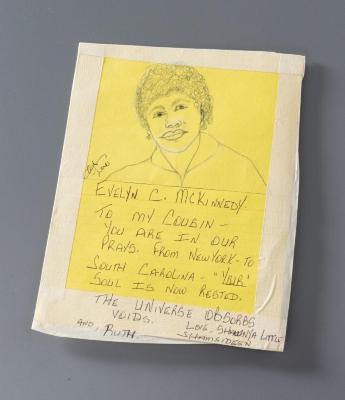 EVELYN C. MCKINNEDY.
TO MY COUSIN -
YOU ARE IN OUR
PRAYS. FROM NEWYORK - TO
SOUTH CAROLINA - "YOUR"
SOUL IS NOW RESTED.
THE UNIVERSE OBSORBS
VOIDS.
LOVE - SHAWNYA LITTLE
AND, RUTH. SHAMSIDEEN